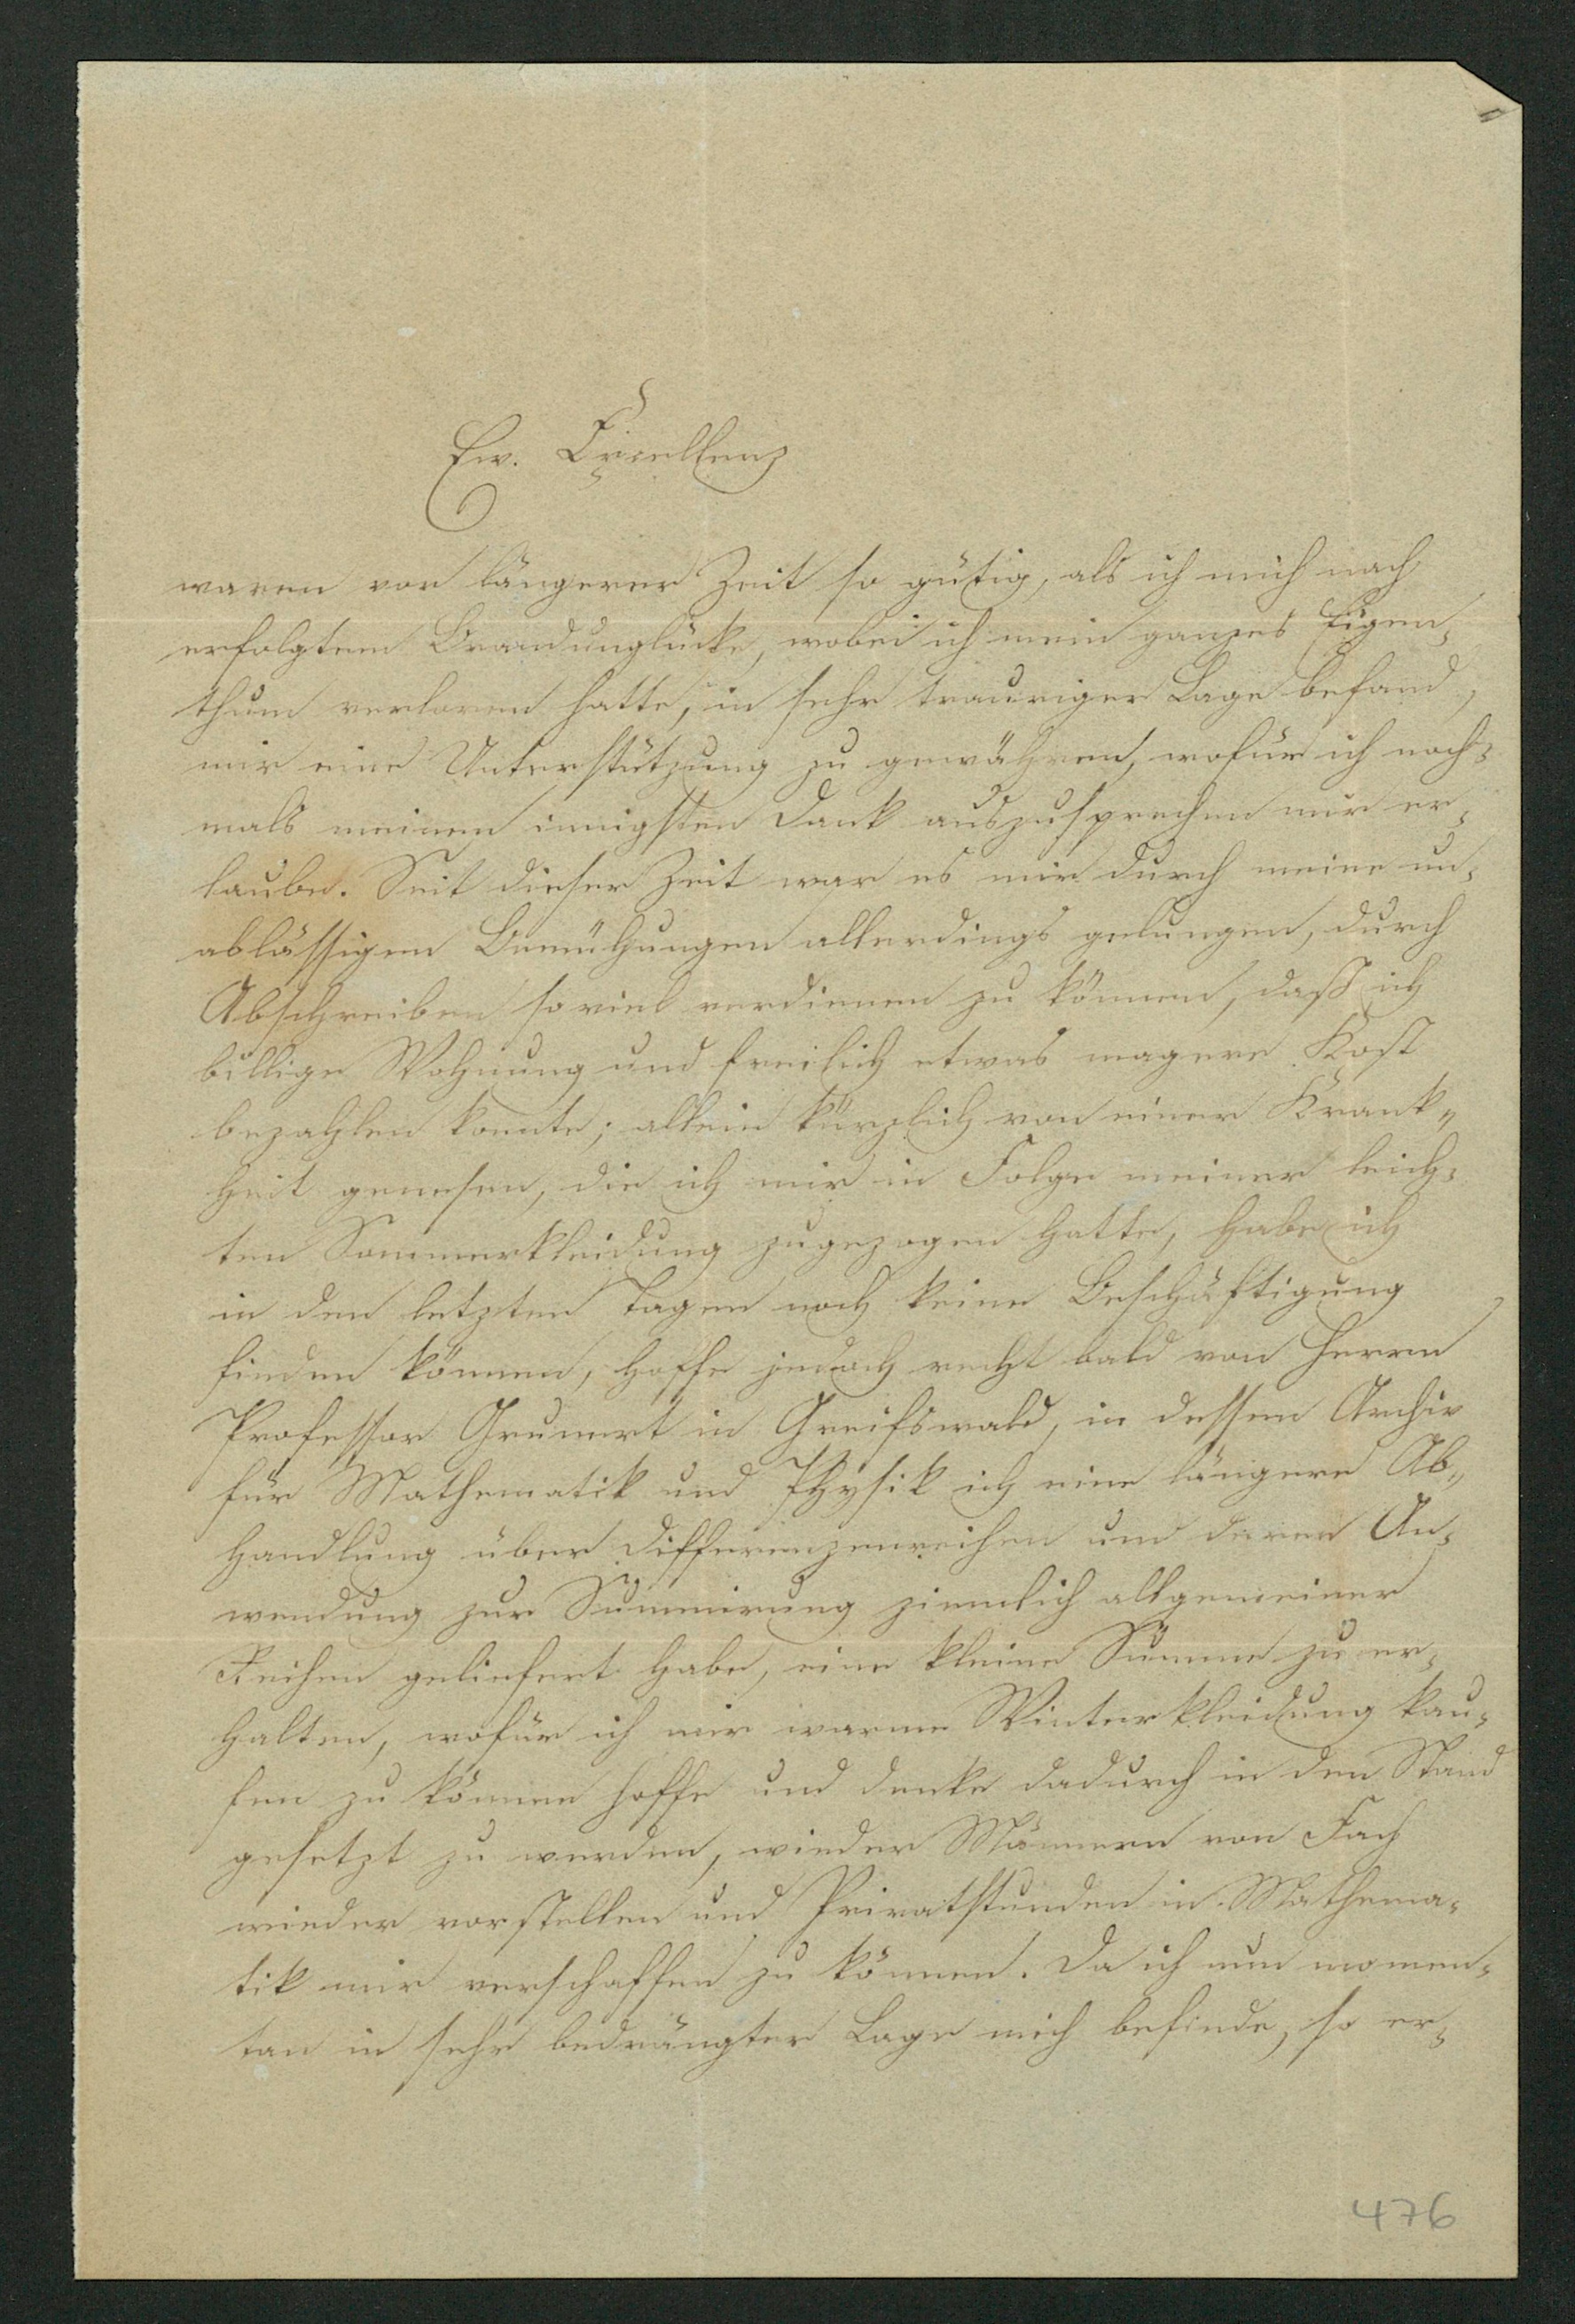 Ew. Excellenz
waren vor längerer Zeit so gütig, als ich mich nach
erfolgtem Brandunglücke, wobei ich mein ganzes Eigen-
thum verloren hatte, in sehr trauriger Lage befand,
mir eine Unterstützung zu gewähren, wofür ich noch-
mals meinen innigsten Dank auszusprechen mir er-
laube. Seit dieser Zeit war es mir durch meine un-
ablässigen Bemühungen allerdings gelungen, durch
Abschreiben so viel verdienen zu können, daß ich
billige Wohnung und freilich etwas magere Kost
bezahlen konnte; allein kürzlich von einer Krank-
heit genesen, die ich mir in Folge meiner leich-
ten Sommerkleidung zugezogen hatte, habe ich
in den letzten Tagen noch keine Beschäftigung
finden können, hoffe jedoch recht bald von Herrn
Professor Grunert in Greifswald, in dessen Archiv
für Mathematik und Physik ich eine längere Ab-
handlung über Differenzenreihen und deren An-
wendung zur Summirung ziemlich allgemeiner
Reihen geliefert habe, eine kleine Summe zu er-
halten, wofür ich mir warme Winterkleidung kau-
fen zu können hoffe und denke dadurch in den Stand
gesetzt zu werden, wieder Männern von Fach
wieder vorstellen und Privatstunden in Mathema-
tik mir verschaffen zu können. Da ich nun momen-
tan in sehr bedrängter Lage mich befinde, so er-
476